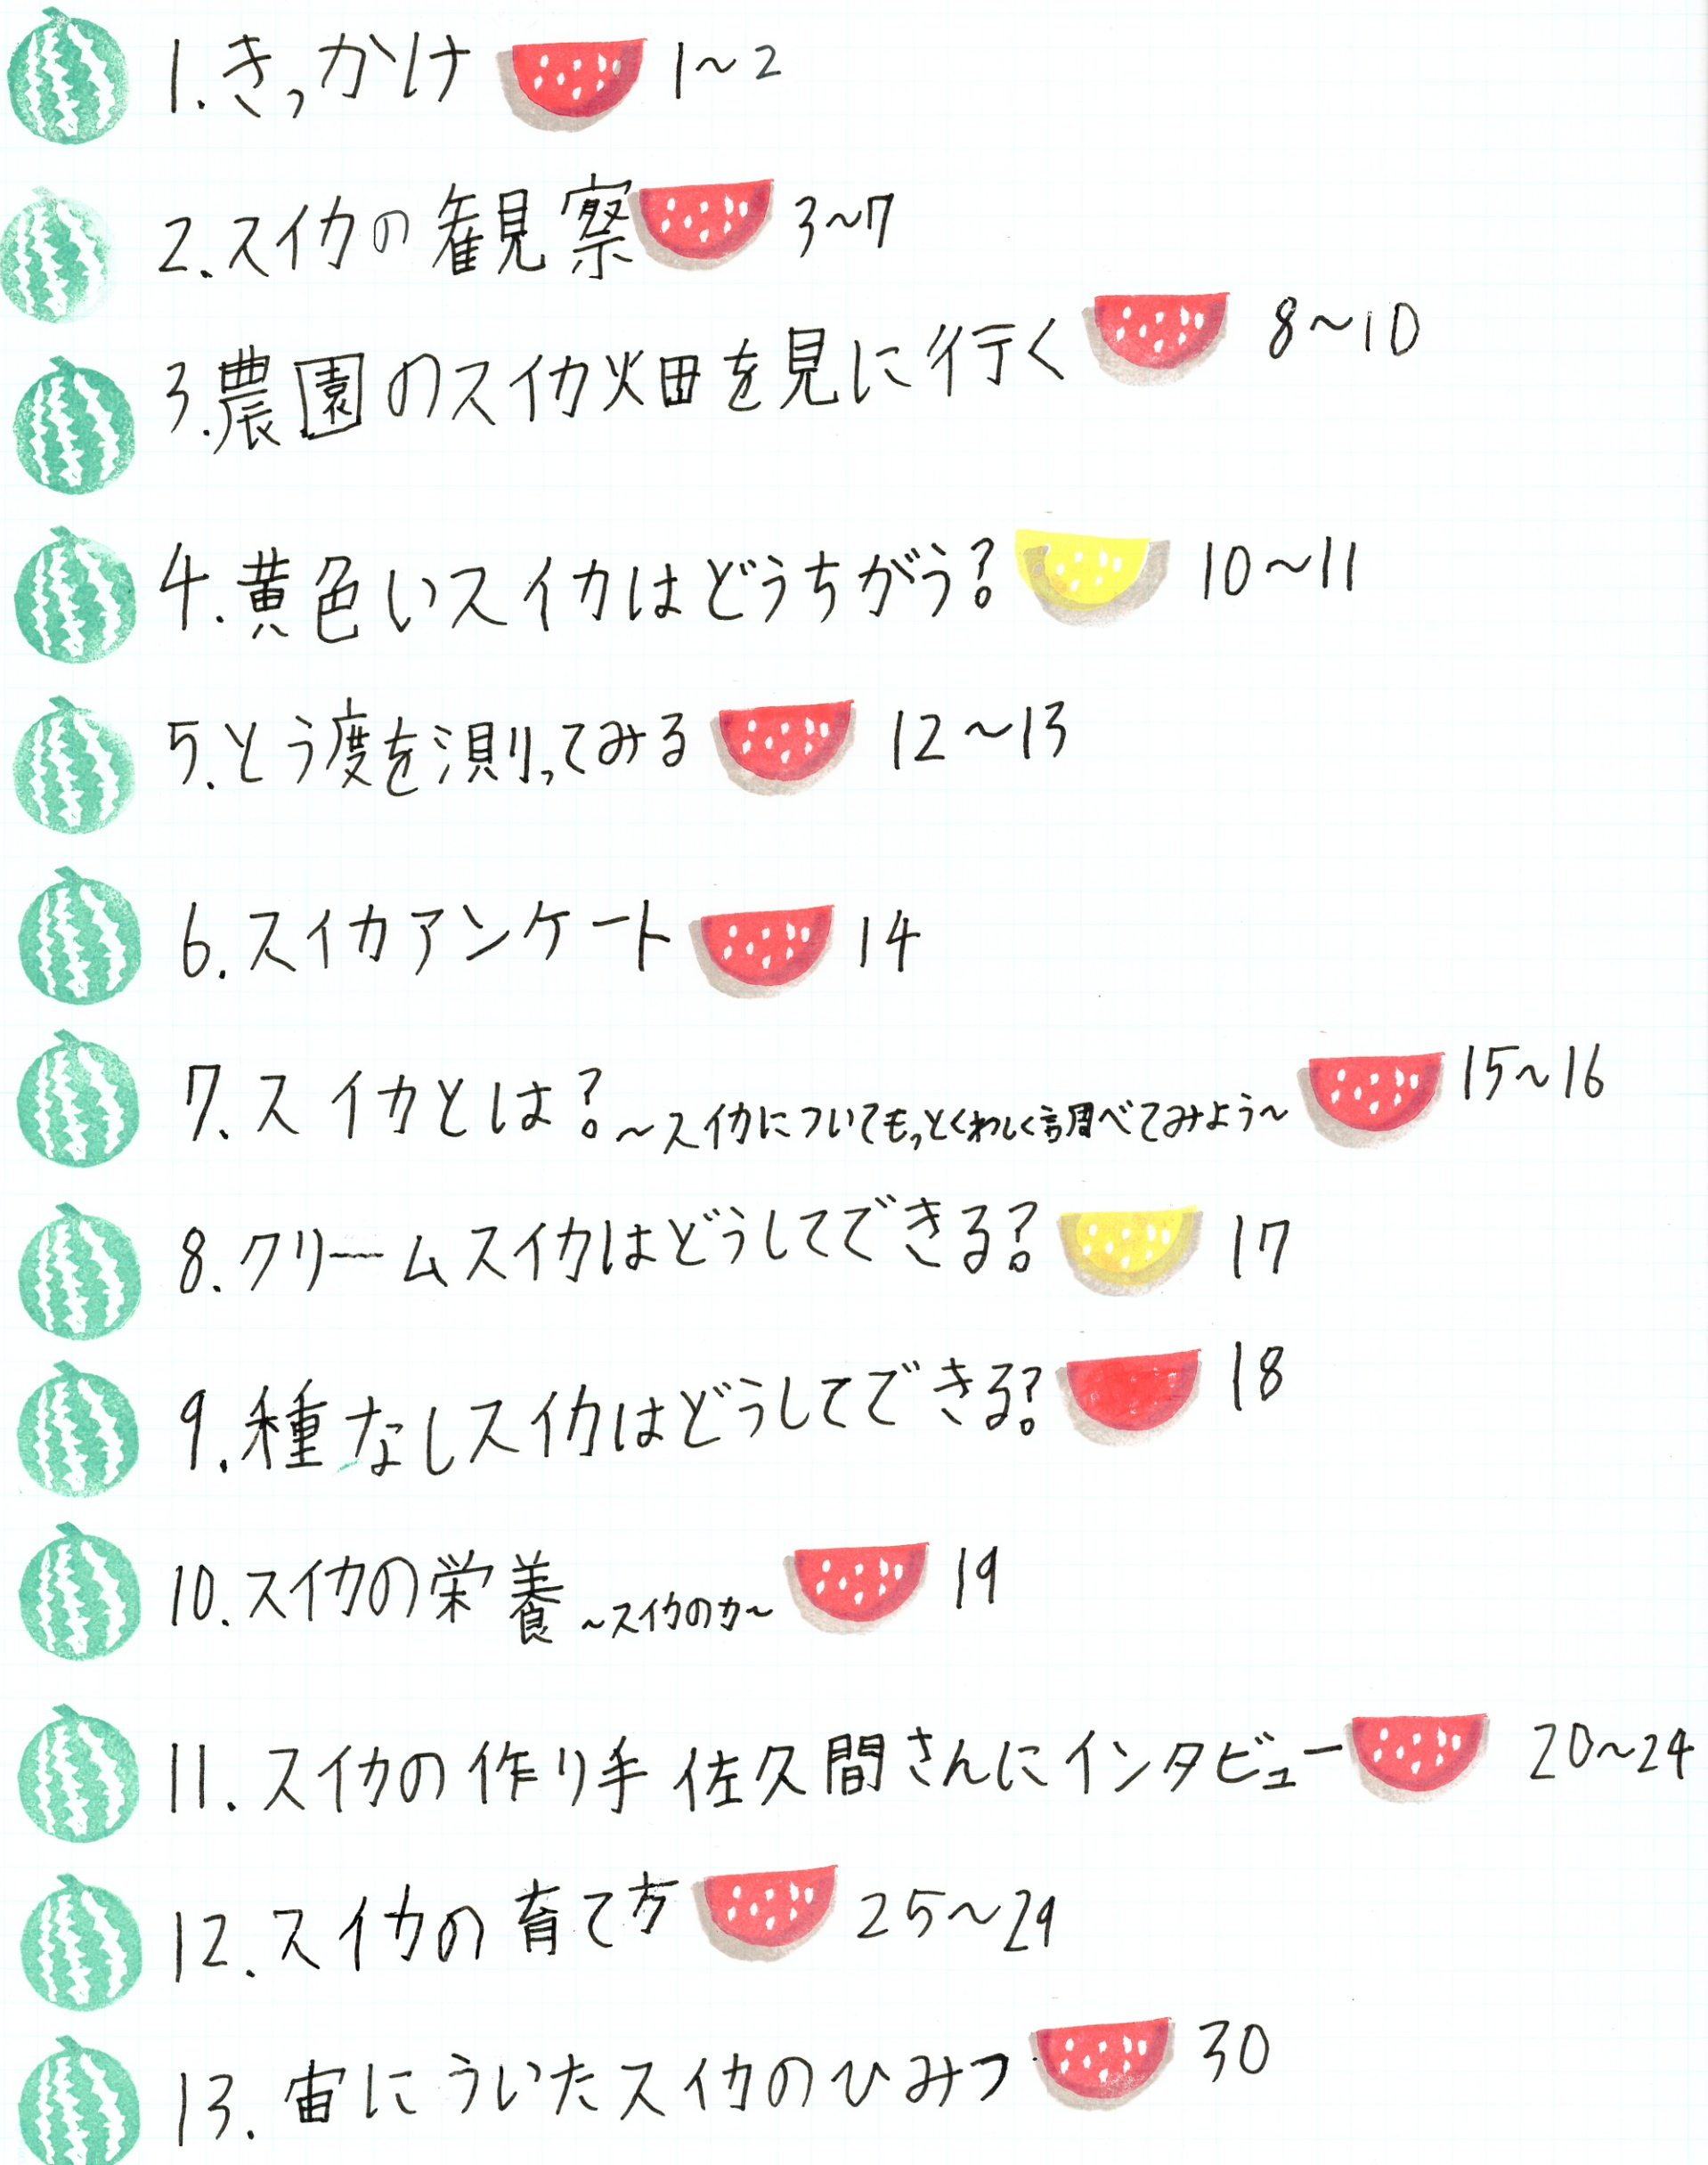 1.きっかけ 1〜2
2.スイカの観察 3〜7
3.農園のスイカ畑を見に行く 8〜10
4.黄色いスイカはどうちがう? 10〜11
5.とう度を測ってみる 12〜13
6.スイカアンケート 14
7.スイカとは?〜スイカについてもっとくわしく調べてみよう〜 15〜16
8.クリームスイカはどうしてできる? 17
9.種なしスイカはどうしてできる? 18
10.スイカの栄養 〜スイカの力〜 19
11.スイカの作り手 佐久間さんにインタビュー 20〜24
12.スイカの育て方 25〜29
13.宙にういたスイカのひみつ 30